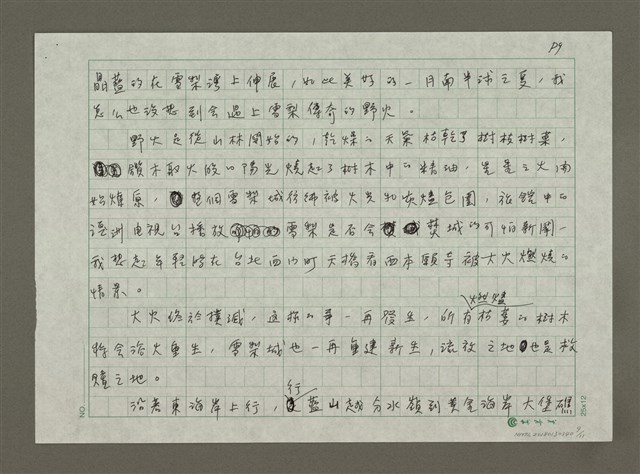 P9
晶藍的在雪梨灣上伸展，如此美好的一月南半球之夏，我
怎么也沒想到会遇上雪梨傳奇的野火。
野火是從山林開始的，乾燥的天氣枯乾了樹枝樹葉，
鑽木取火般的陽光燒起了樹木中的精油，星星之火開
始燎原，整個雪梨城彷彿被火光和灰燼包圍，旅館中的
澳洲电視台播放雪梨是否会焚城的可怕新聞—
我想起年輕時在台北西门町天橋看西本願寺被大火燃燒的
情景。
大火終於撲滅，這樣的事一再發生，所有燃燼枯萎的樹木
将会浴火重生，雪梨城也一再重建新生，流放之地也是救
贖之地。
沿着東海岸上行，行藍山越分水嶺到黃金海岸大堡礁
NO.
25x12